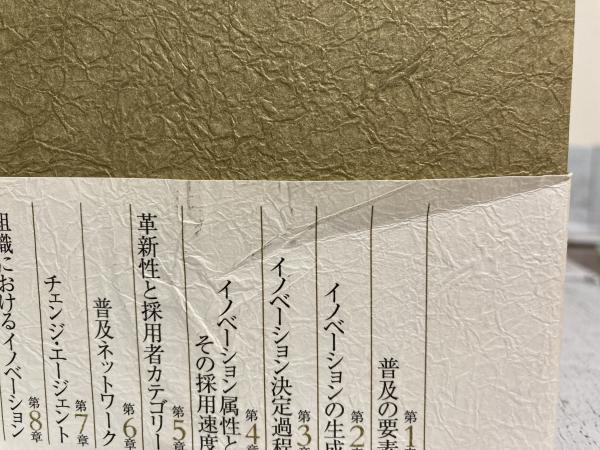 第1章
普及の要素
第2章
イノベーションの生成
第3章
イノベーション決定過程
第4章
イノベーション属性と
その採用速度
第5章
革新性と採用者カテゴリー
第6章
普及ネットワーク
第7章
チェンジ・エージェント
第8章
組織におけるイノベーション